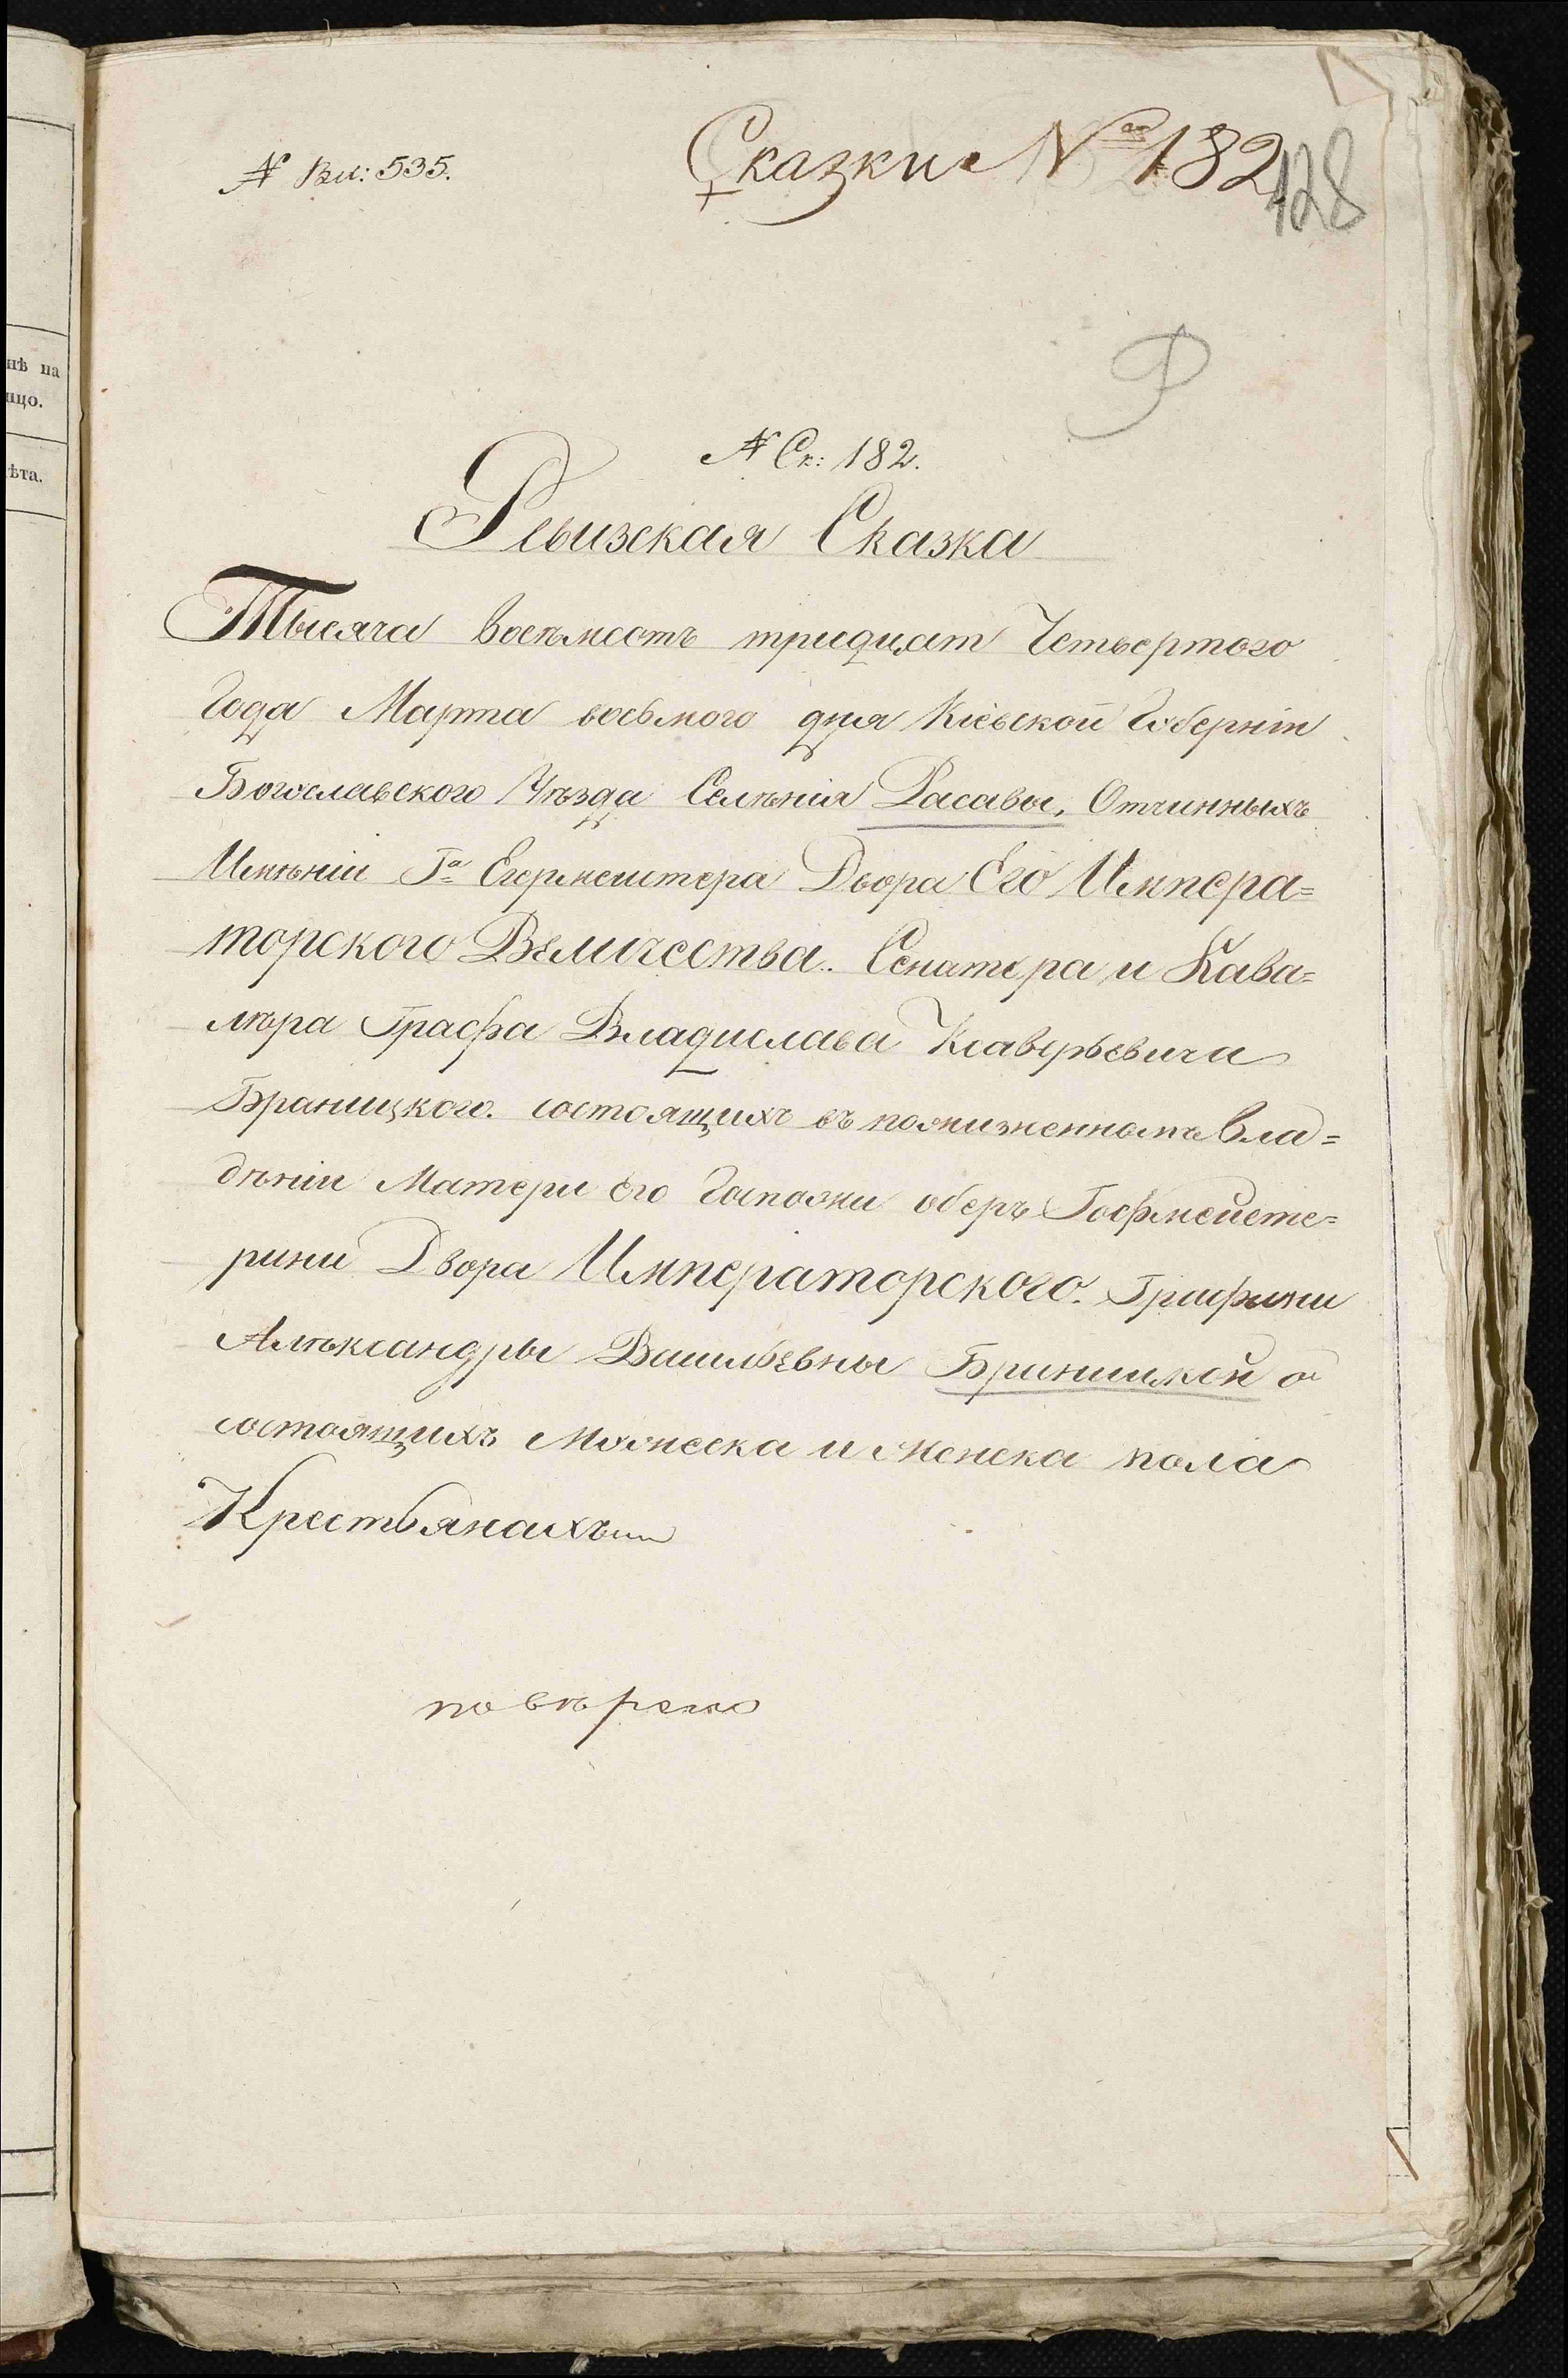 нѣ на
лцо.
ѣта.
№ Ви: 535.
Сказки № 182
128
Р
№ Ск: 182.
Ревизская Сказка
Тысяча восемсотъ тридцат Четвертого
Года Марта восьмого дня Кіевской Губерніи
Богуславского Уѣзда Селѣнія Расавы, Отчинныхъ
Имѣніи Г-а Егермейстера Двора Его Импера=
торского Величества. Сенатера и Кава=
лѣра Графа Владислава Ксаверьевича
Браницкого. состоящихъ въ пожизненномъ Вла=
дѣніи Матери Его Госпожи оберъ Гофмейсте=
рини Двора Императорского. Графини
Алѣксандры Васильевны Браницкой о
состоящихъ Мужеска и Женска пола
Крестьянахъ
повѣрено